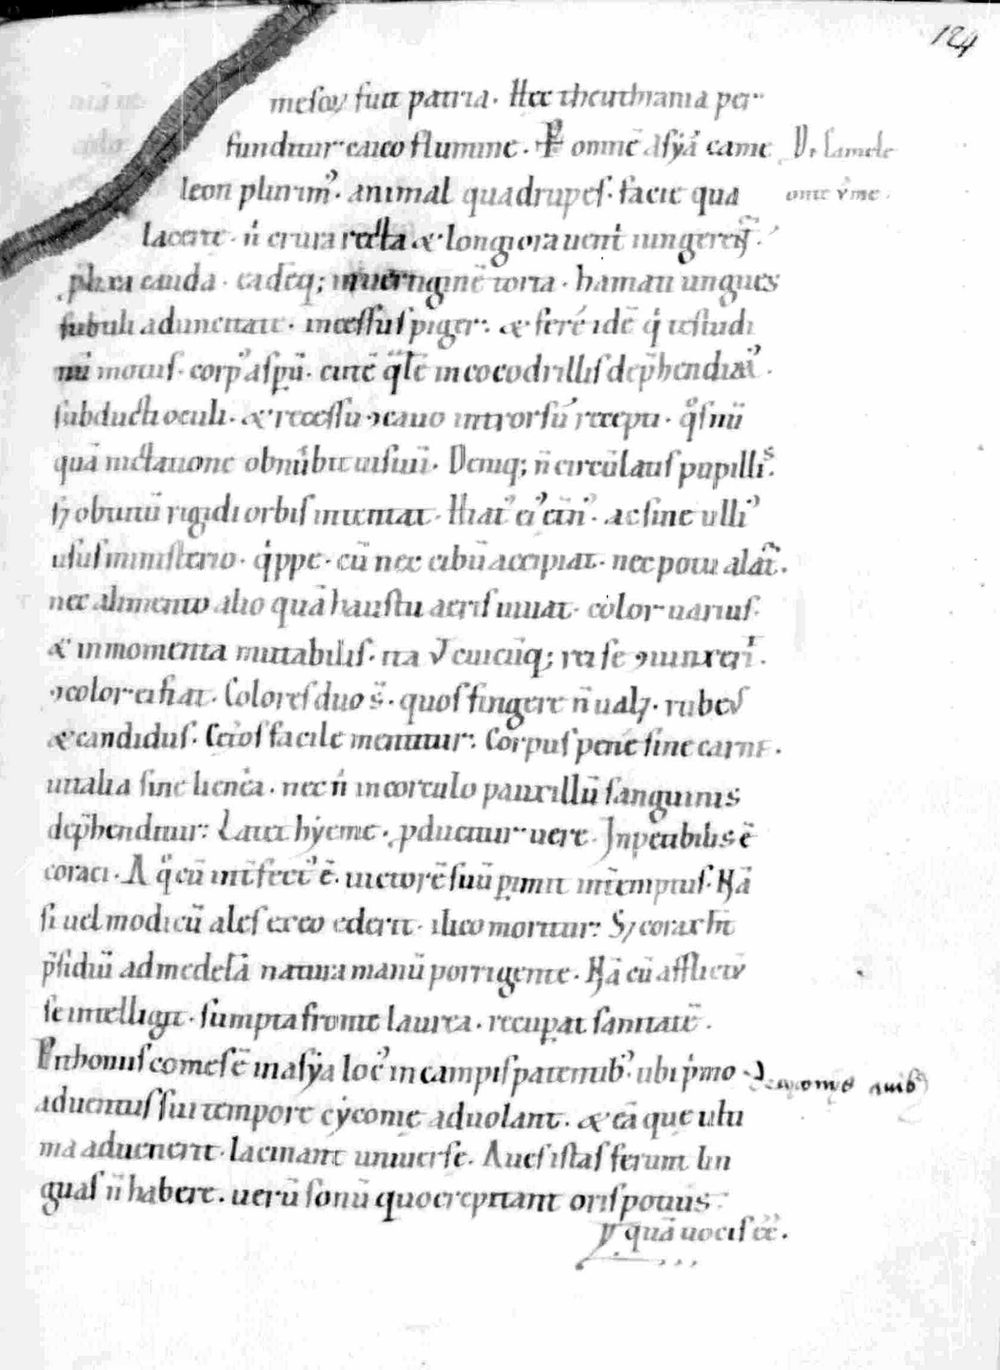 124
mesq; fuit patria. Hec theuthrania per
funditur caico flumine. P omnē Asyā came
De camele
leon plurim᾽. animal quadrupes. facie qua
onte v̄me.
lacerte. n̄ crura recta & longiora uentͥ iungerēt᷑.
plixa cauda. eadēq; inuertiginē torta. hamati ungues
subtili aduncitate. incessus piger. & feré idē qͥ testudi
nū motus. corp᾽ aspū. cutē q̄lē in cocodrillis dep̄hendim᾽.
subducti oculi. & recessu ɔcauo introrsū recepti. qͦs nū
quā nictatione obnubit uisum̄. Deniq; n̄ circūlatis pupillis.
sꝫ obtutū rigidi orbis intentat. Hiat᾽ ei᾽ et̄n᾽. ac sine ulli᾽
usus ministerio. qͥppe. cū nec cibū accipiat. nec potu alat᷑.
nec alimento alio quā haustu aeris uiuat. color uarius.
& in momenta mutabilis. ita ut cuicūq; rei se ɔiunxerit.
ɔcolor ei fiat. Colores duo s̄. quos fingere n̄ ualꝫ. rubeus
& candidus. Cetos facile mentitur. Corpus pene sine carne.
uitalia sine liene. nec n̄ in corculo pauxillū sanguinis
dep̄henditur. Latet hyeme. ꝓducitur uere. Inpetibilis ē
coraci. A qͦ cū int̄fect᾽ ē. uictorē suū pimit int̄emptus. Nā
si uel modicū ales ex eo ederit. ilico moritur. Sꝫ corax ht̄
p̄sidiū ad medelā natura manū porrigente. Nā cū afflictū
se intelligit. sumpta fronte laurea. recuperat sanitatē.
Pithonis comes ē in asya loc᾽ in campis patentib᾽. ubi pͥmo
De cyconiis auib᾽
aduentus sui tempore cycome aduolant. & eā que ulti
ma aduenerit. lacinant uniuerse. Aues istas ferunt lin
guas n̄ habere. uerū sonū quo crepitant oris potius
quā uocis eē.